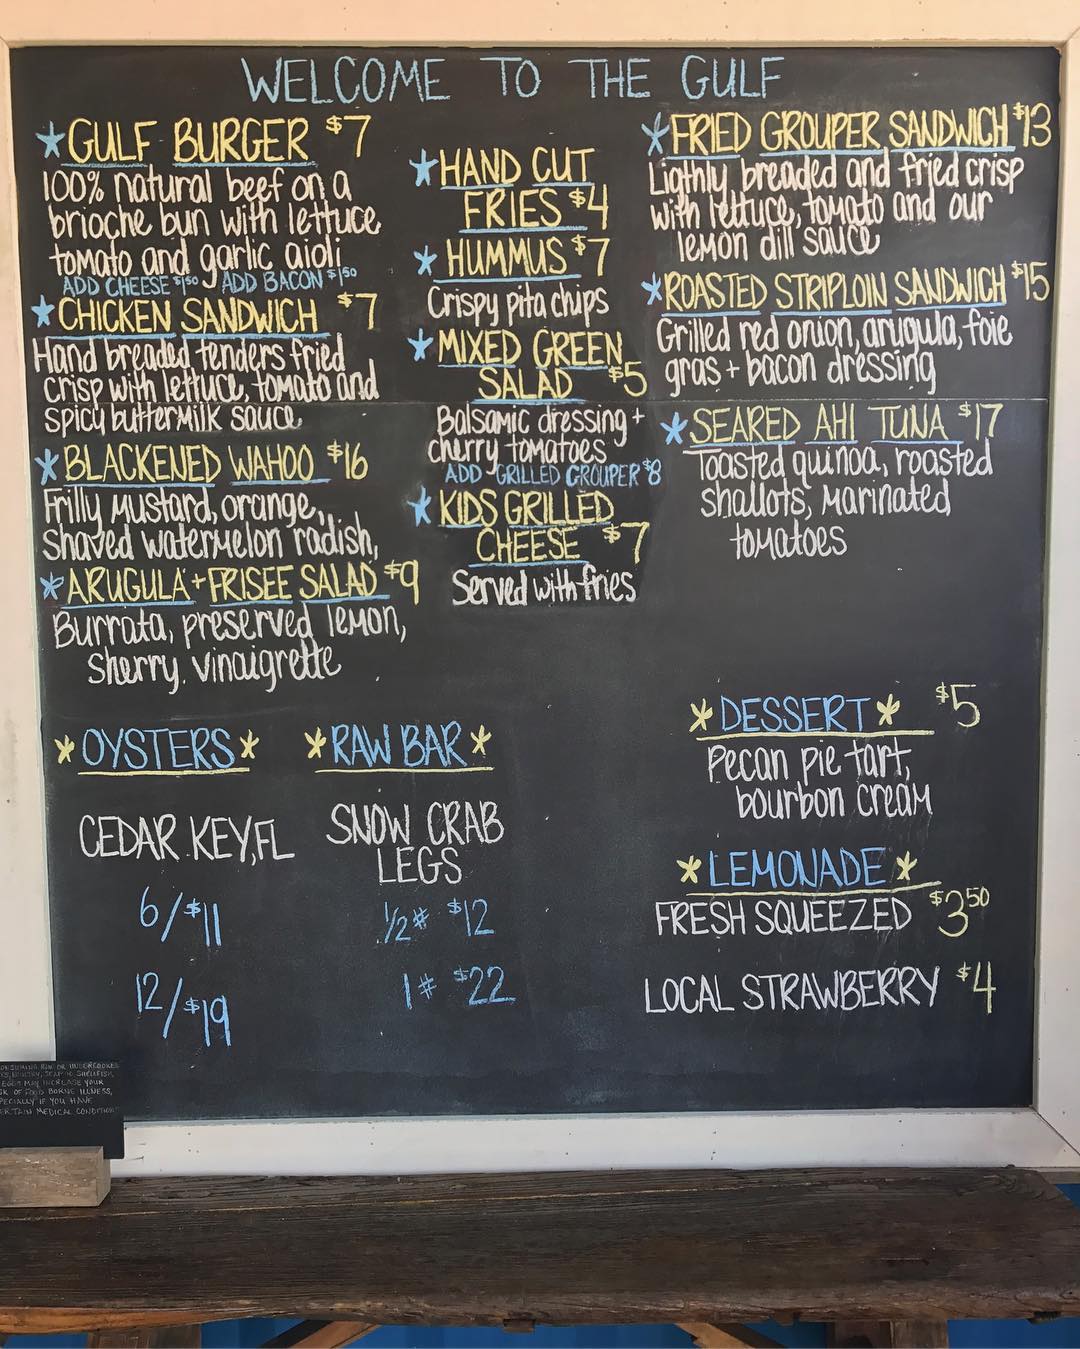 WELCOME TO THE GULF
GULF BURGER $7
100% natural beef on a
brioche bun with lettuce
tomato and garlic aioli
ADD CHEESE $1.50 ADD BACON $1.50
CHICKEN SANDWICH $7
Hand breaded tenders fried
crisp with lettuce, tomato and
spicy buttermilk sauce
BLACKENED WAHOO $16
Frilly mustard, orange,
Shaved watermelon radish,
ARUGULA + FRISEE SALAD $9
Burrata, preserved lemon,
Sherry vinaigrette
HAND CUT
FRIES $4
HUMMUS $7
Crispy pita chips
MIXED GREEN
SALAD $5
Balsamic dressing +
cherry tomatoes
ADD GRILLED GROUPER $8
KIDS GRILLED
CHEESE $7
Served with fries
FRIED GROUPER SANDWICH $13
Ligthly breaded and fried crisp
with lettuce, tomato and our
lemon dill sauce
ROASTED STRIPLOIN SANDWICH $15
Grilled red onion, arugula, foie
gras + bacon dressing
SEARED AHI TUNA $17
Toasted quinoa, roasted
shallots, marinated
tomatoes
OYSTERS
CEDAR KEY, FL
6/$11
12/$19
RAW BAR
SNOW CRAB
LEGS
1/2# $12
1# $22
DESSERT $5
Pecan pie tart,
bourbon cream
LEMONADE
FRESH SQUEEZED $3.50
LOCAL STRAWBERRY $4
CONSUMING RAW OR UNDERCOOKED
SHELLFISH,
EGGS MAY INCREASE YOUR
OF FOOD BORNE ILLNESS,
IF YOU HAVE
MEDICAL CONDITION